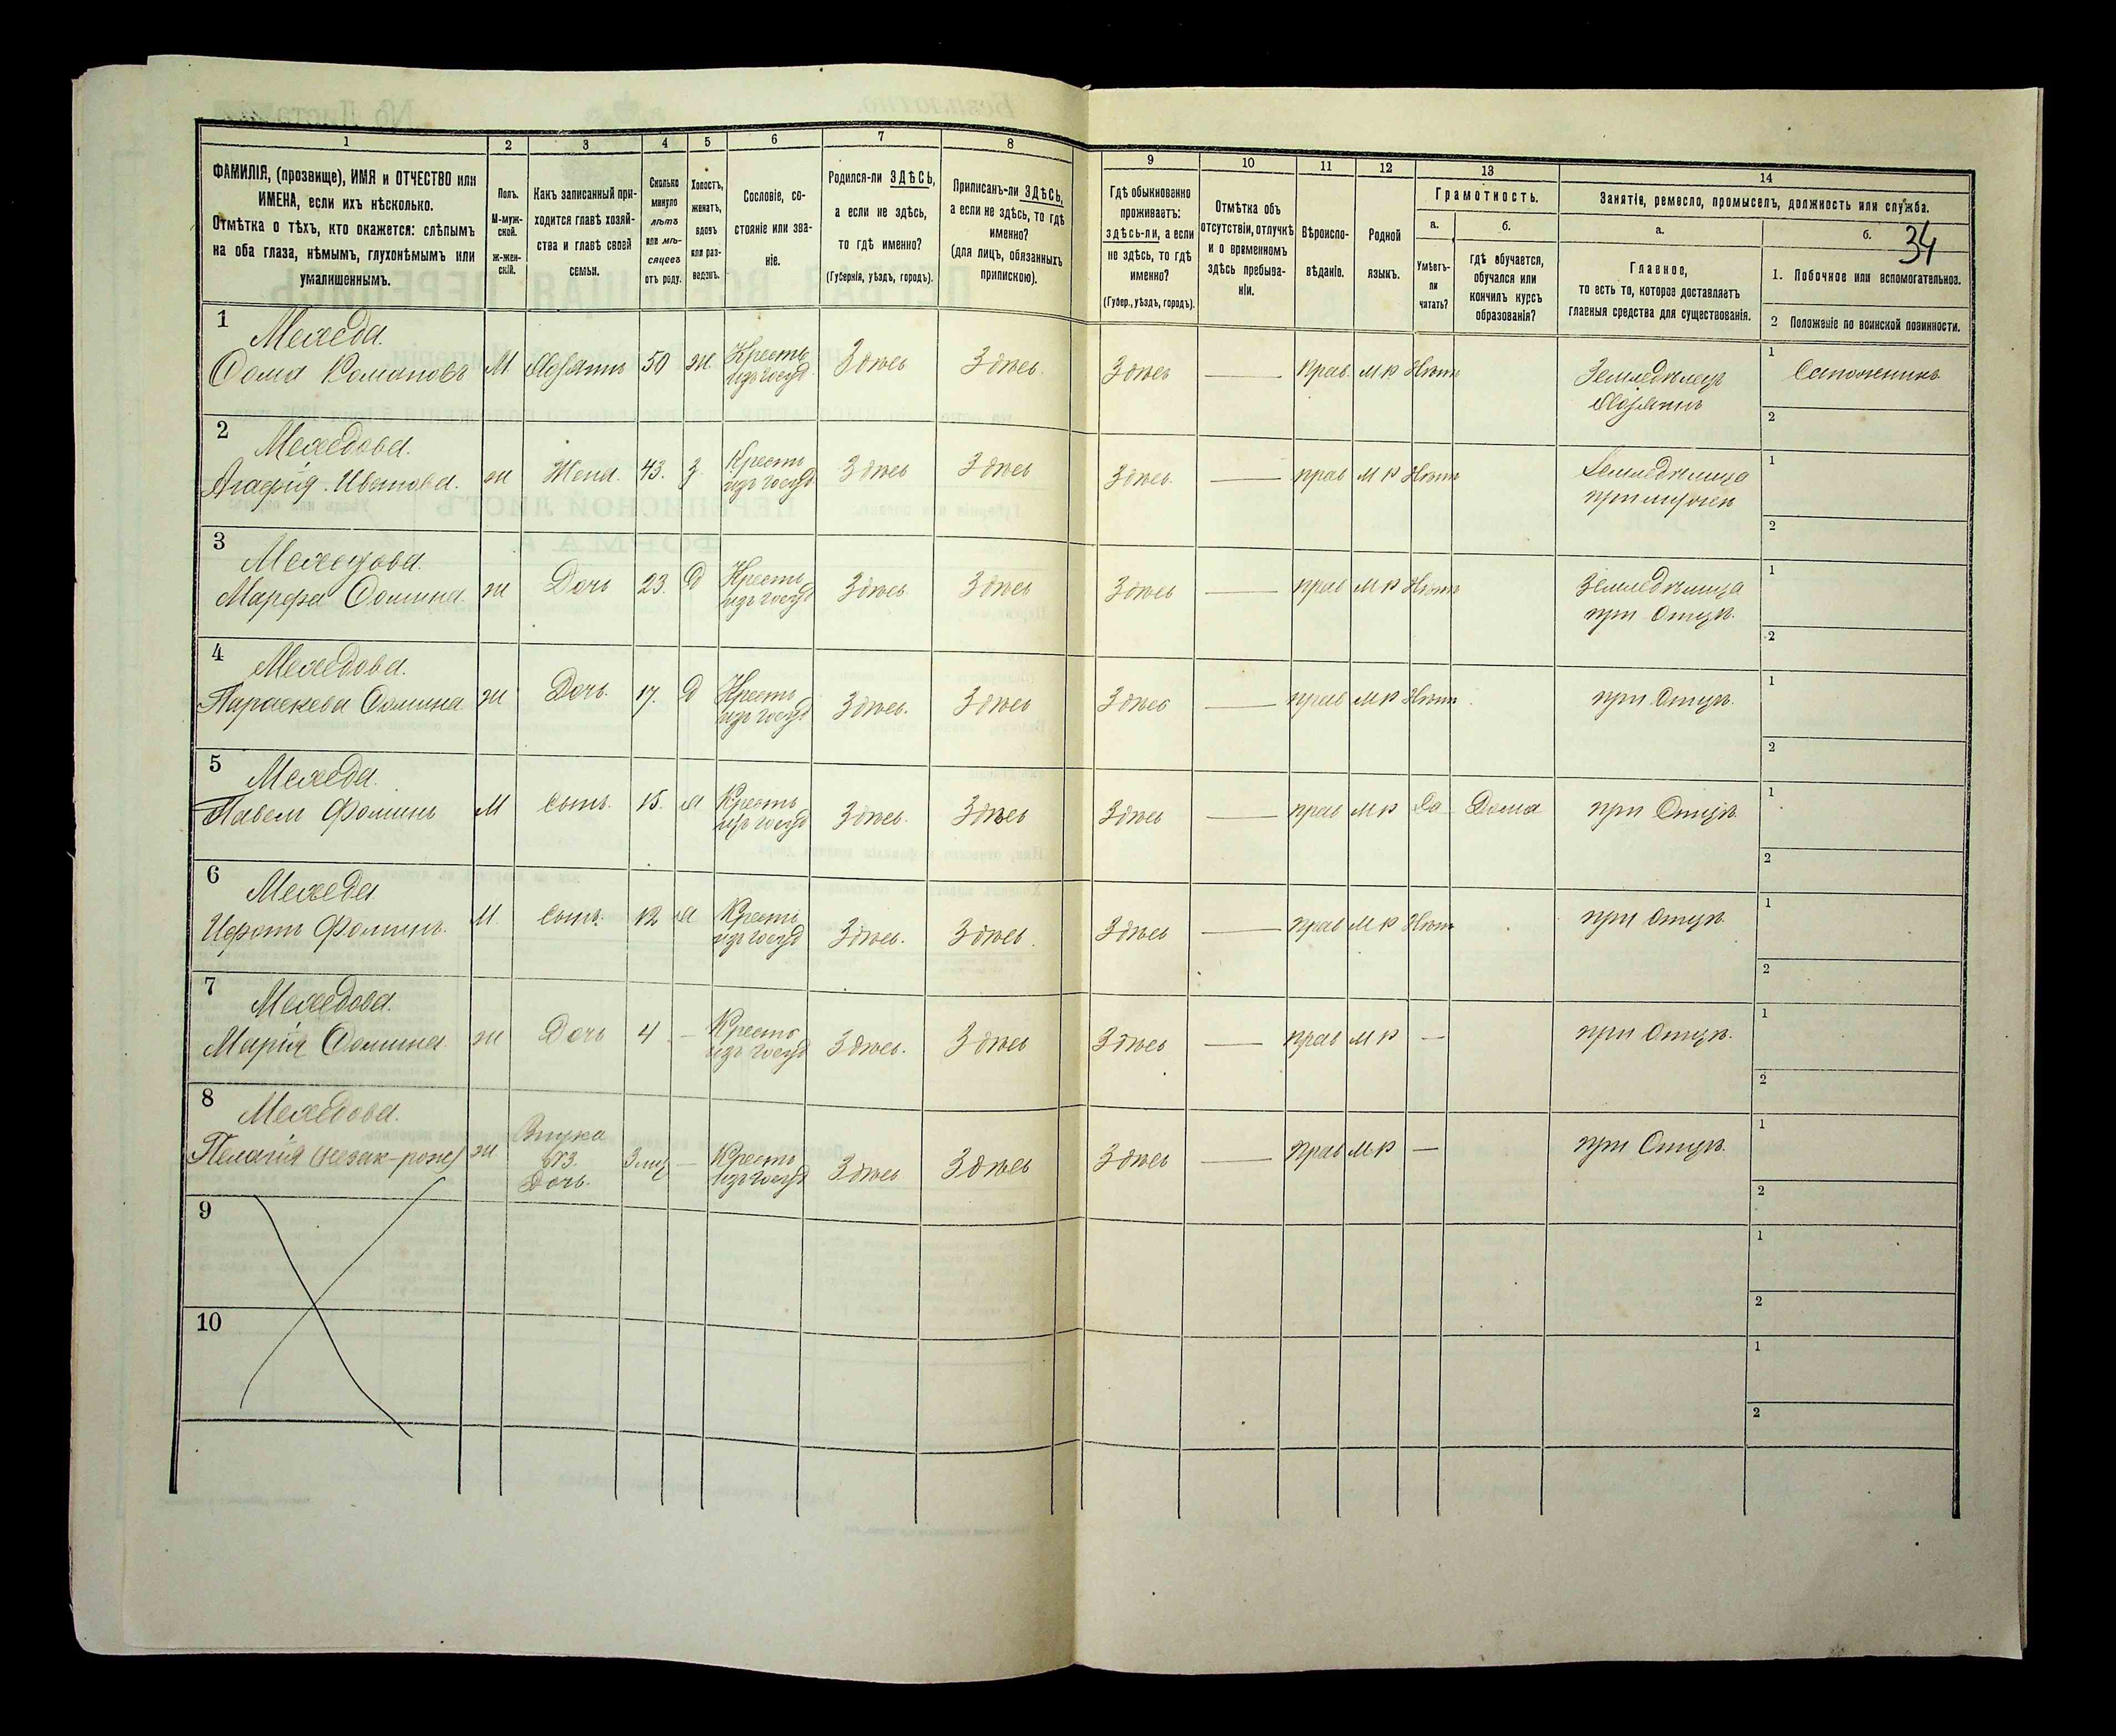 1 2 3 4 5 6 7 8 9 10 11 12 13 14
ФАМИЛІЯ, (прозвище), ИМЯ и ОТЧЕСТВО или
ИМЕНА, если ихъ нѣсколько.
Отмѣтка о тѣхъ, кто окажется: слѣпымъ
на оба глаза, нѣмымъ, глухонѣмымъ или
умалишеннымъ.
Полъ.
М-муж-
ской.
ж-жен-
скій.
Какъ записанный при-
ходится главѣ хозяй-
ства и главѣ своей
семьи.
Сколько
минуло
лѣтъ
или мѣ-
сяцевъ
отъ роду.
Холостъ,
женатъ,
вдовъ
или раз-
веденъ.
Сословіе, со-
стояніе или зва-
ніе.
Родился-ли ЗДѢСЬ,
а если не здѣсь,
то гдѣ именно?
(Губернія, уѣздъ, городъ).
Приписанъ-ли ЗДѢСЬ,
а если не здѣсь, то гдѣ
именно?
(для лицъ, обязанныхъ
припискою).
Гдѣ обыкновенно
проживаетъ:
здѣсь-ли, а если
не здѣсь, то гдѣ
именно?
(Губер., уѣздъ, городъ).
Отмѣтка объ
отсутствіи, отлучкѣ
и о временномъ
здѣсь пребыва-
ніи.
Вѣроиспо-
вѣданіе.
Родной
языкъ.
Грамотность.
а.
Умѣетъ-
ли
читать?
б.
гдѣ обучается,
обучался или
кончилъ курсъ
образованія?
Занятіе, ремесло, промыселъ, должность или служба.
а.
Главное,
то есть то, которое доставляетъ
главныя средства для существованія.
б.
34
1. Побочное или вспомогательное.
2 Положеніе по воинской повинности.
1 Мехеда.
Ѳома Романовъ М Хозяинъ 50 ж. Крестъ изъ госуд Здѣсь Здѣсь. Здѣсь — Прав. М Р Нѣтъ Земледѣлецъ Хозяинъ 1 Сапожникъ
2
2 Мехедова.
Агафія Иванова. ж Жена. 43. з. Крестъ изъ госуд Здѣсь Здѣсь Здѣсь. — прав М Р Нѣтъ Земледѣлица при мужѣ 1
2
3 Мехедова.
Марфа Ѳомина ж Дочь 23. д Крестъ изъ госуд Здѣсь Здѣсь Здѣсь — прав М Р Нѣтъ Земледѣлица при Отцѣ. 1
2
4 Мехедова.
Параскева Ѳомина ж Дочь. 17. д Крестъ изъ госуд Здѣсь. Здѣсь Здѣсь — прав М Р Нѣтъ при Отцѣ. 1
2
5 Мехеда.
Павелъ Фоминъ М Сынъ. 15. х Крестъ изъ госуд Здѣсь. Здѣсь Здѣсь — прав М Р Да Дома при Отцѣ 1
2
6 Мехеда
Фоминъ. М Сынъ. 12 х Крестъ изъ госуд Здѣсь. Здѣсь. Здѣсь — прав М Р Нѣтъ при Отцѣ 1
2
7 Мехедова.
Марія Ѳомина ж Дочь 4 — Крестъ изъ госуд Здѣсь. Здѣсь Здѣсь — прав М Р — при Отцѣ. 1
2
8 Мехедова.
Пелагія (незак-рож) ж Внука №3. Дочь. 3 мѣс — Крестъ изъ госуд Здѣсь Здѣсь Здѣсь — прав М Р — при Отцѣ. 1
2
9 1
2
10 1
2